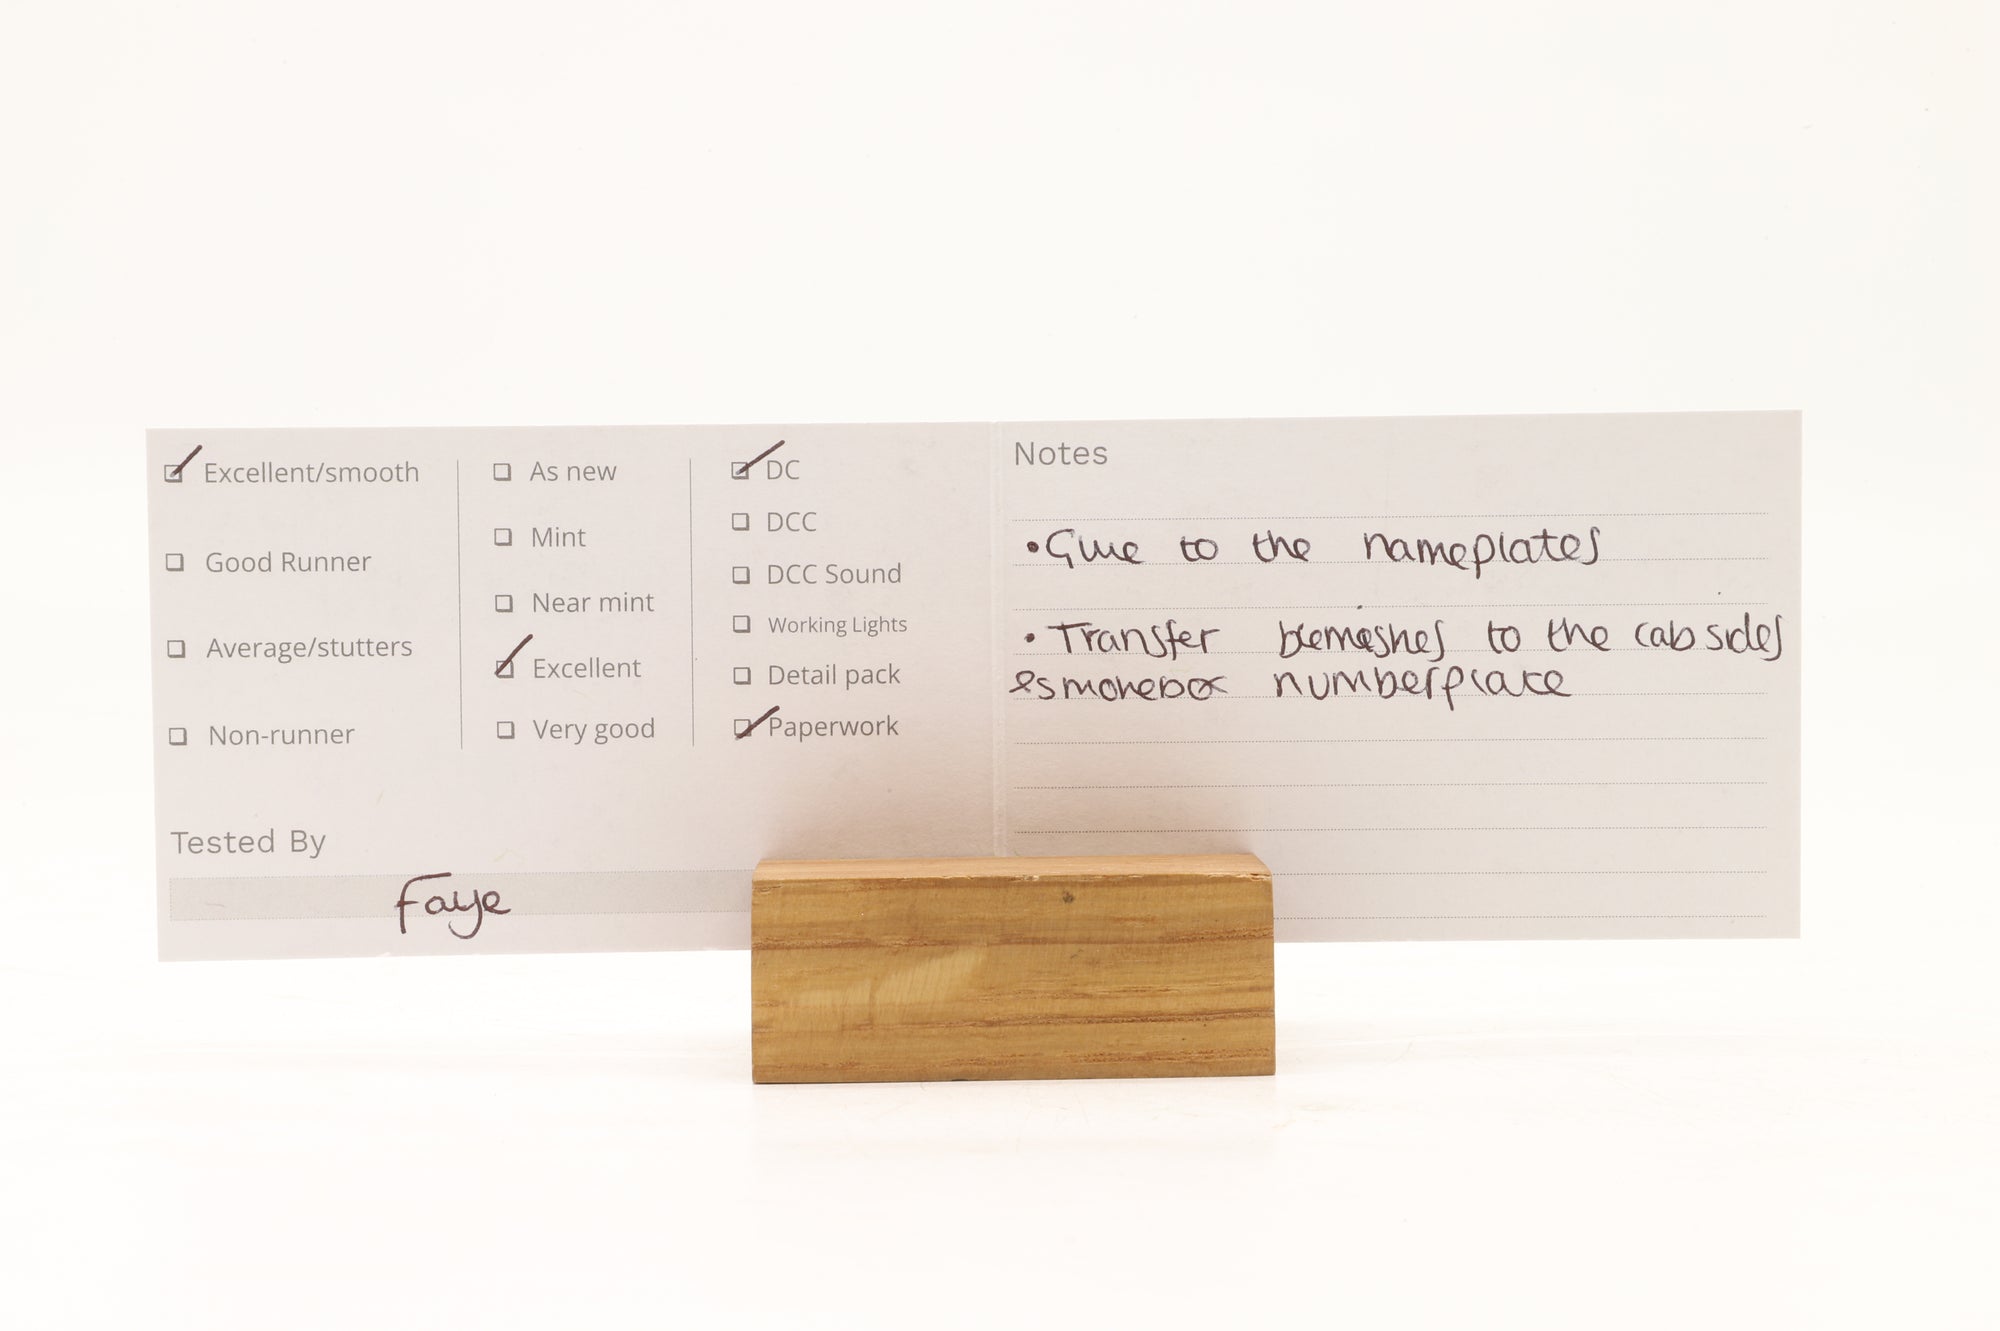 Excellent/smooth
Good Runner
Average/stutters
Non-runner
As new
Mint
Near mint
Excellent
Very good
DC
DCC
DCC Sound
Working Lights
Detail pack
Paperwork
Tested By
Faye
Notes
• Glue to the nameplates
• Transfer blemishes to the cab sides
& smokebox numberplate